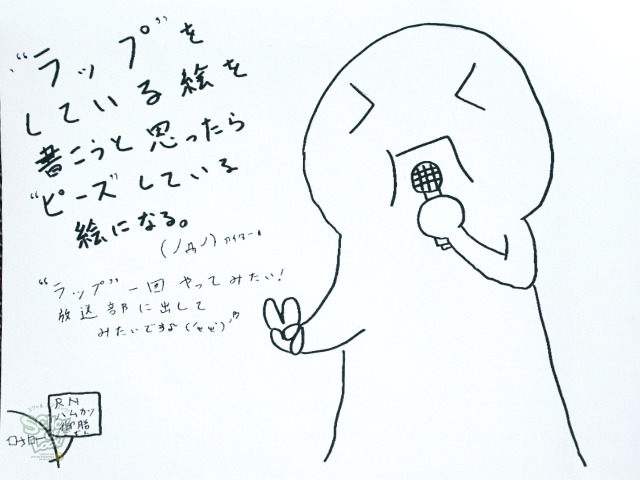 "ラップ"を
している絵を
書こうと思ったら
"ピース"している
絵になる。
"ラップ"一回やってみたい!
放送部に出して
みたいですね
RN
ハムカツ